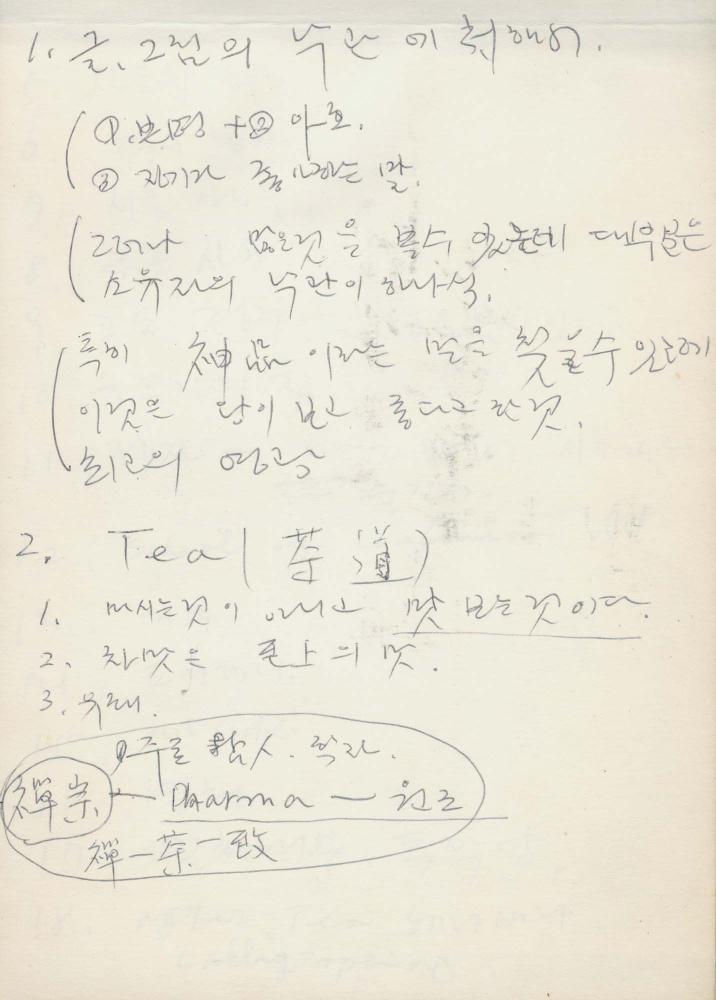 1. 글, 그림의 낙관에 취해서.
① 본명 + ② 아호.
③ 자기가 좋아하는 말.
그러나 많은것을 볼수 있는데 대부분은
소유자의 낙관이 하나씩.
특히 神品이라는 말을 찾을수 있는데
이것은 보고 좋다고 한것.
최고의 영광
2. Tea (茶道)
1. 마시는것이 아니고 맛보는것이다.
2. 차맛은 至上의 맛.
3. 유래.
주로 人. 학자.
禪宗 — Dharma — 원조
禪—茶—致